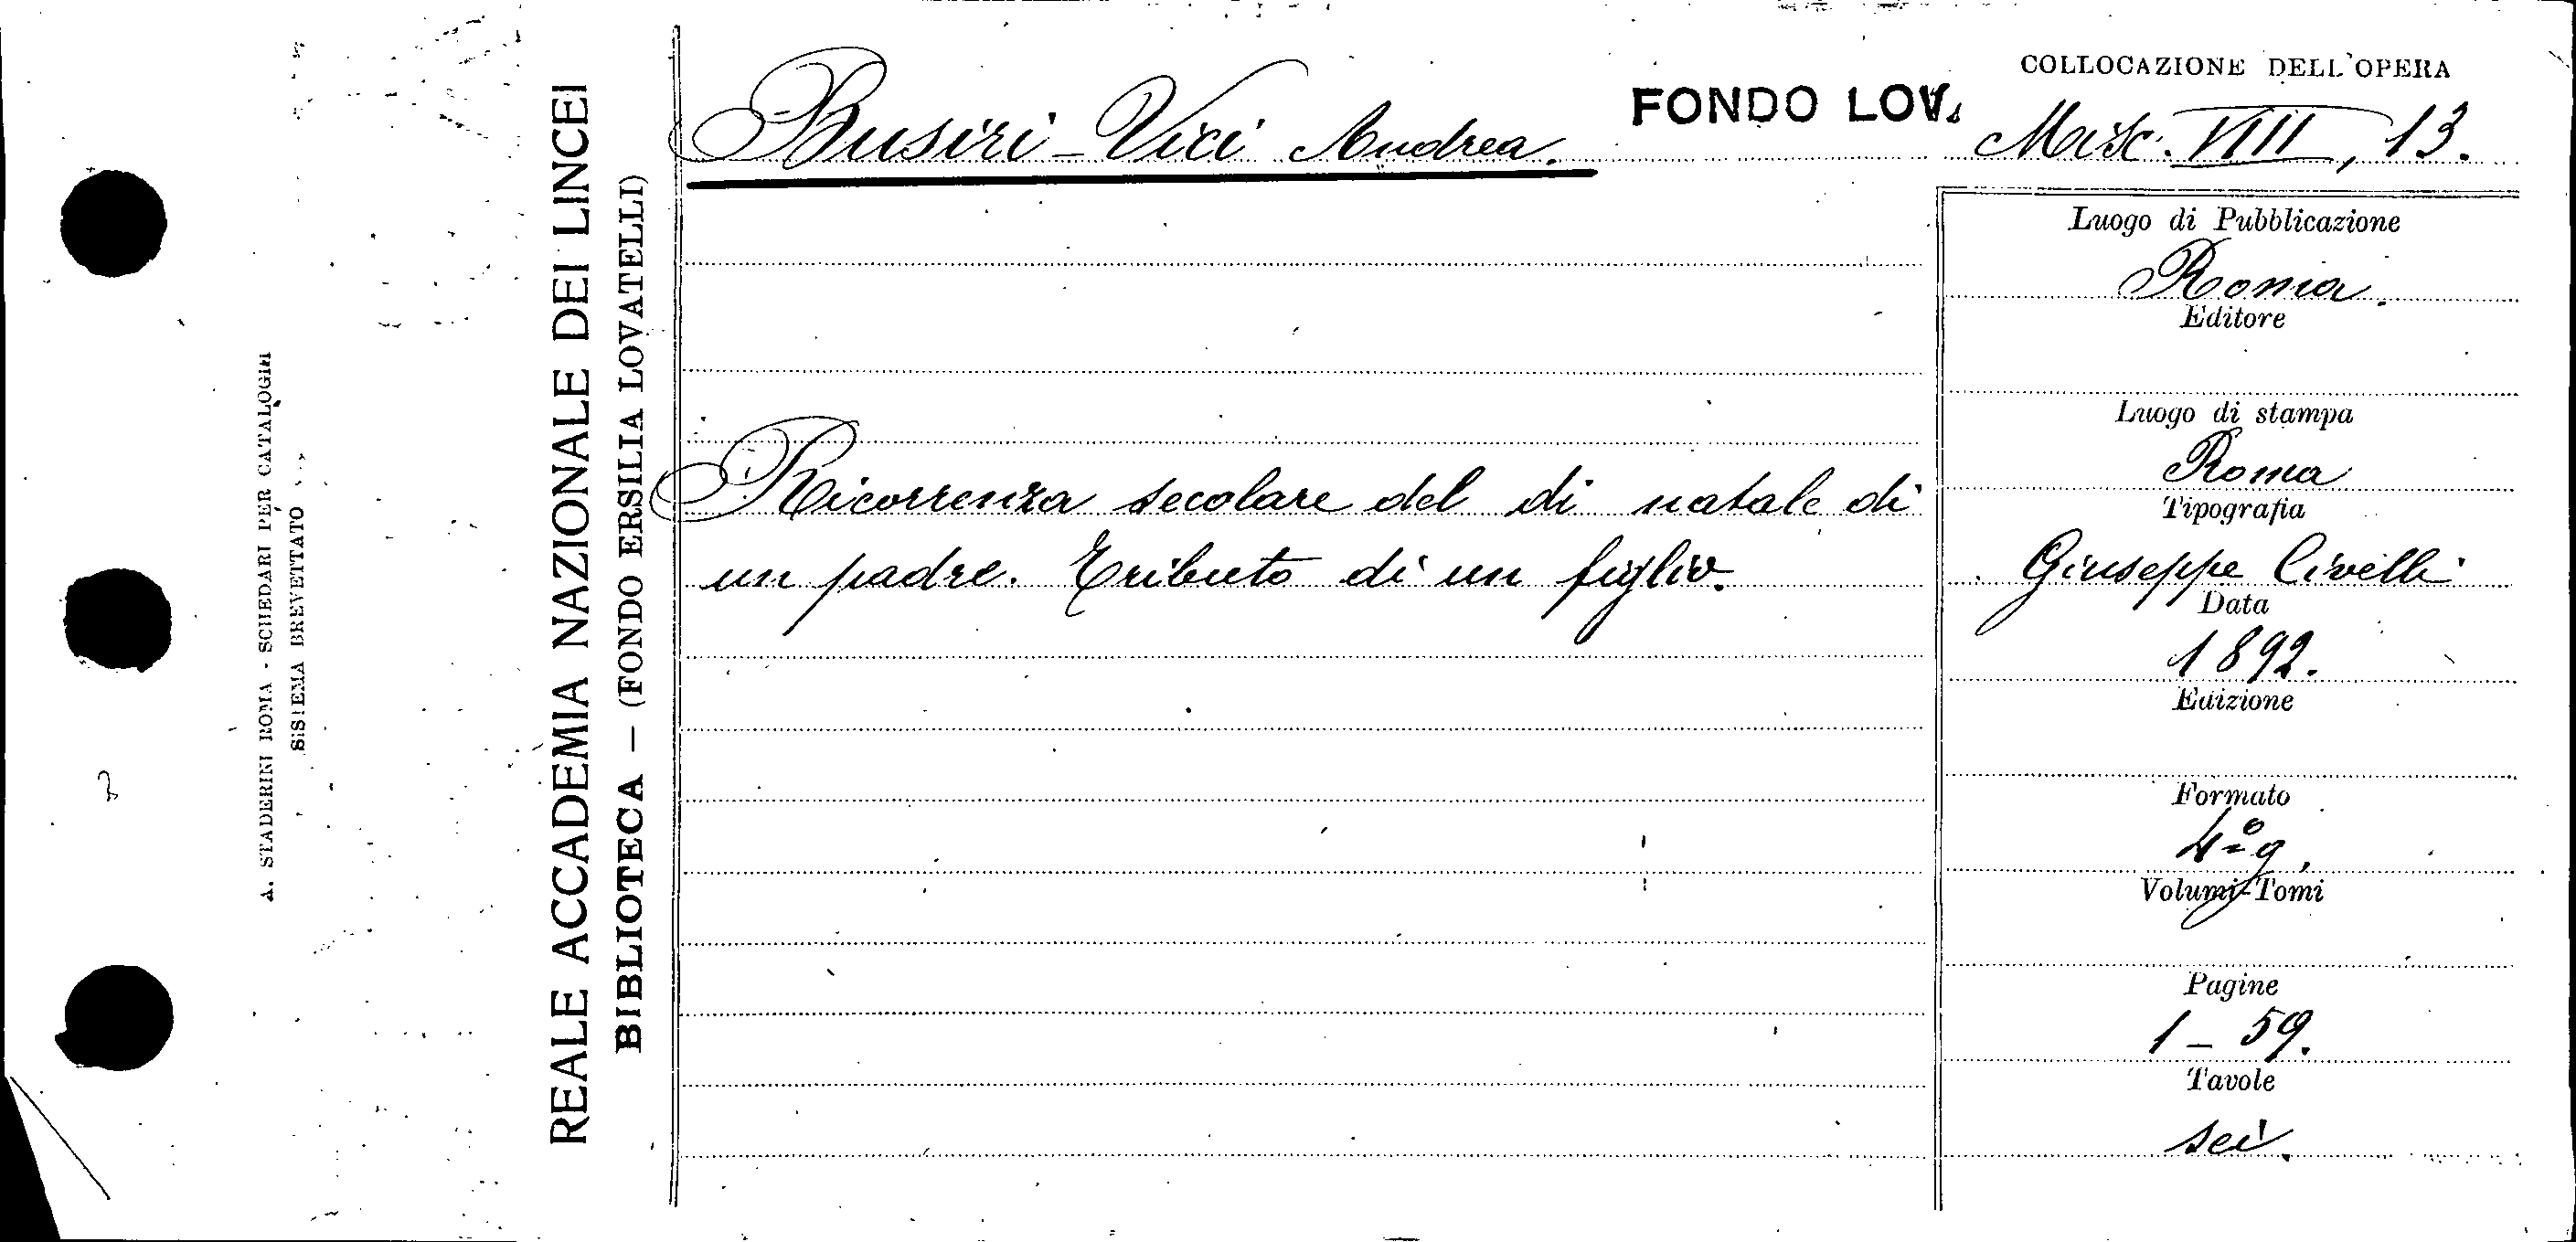 A. STADERINI ROMA - SCHEDARI PER CATALOGHI
SISTEMA BREVETTATO
REALE ACCADEMIA NAZIONALE DEI LINCEI
BIBLIOTECA — (FONDO ERSILIA LOVATELLI)
Busiri-Vici Andrea.
FONDO LOV.
COLLOCAZIONE DELL'OPERA
Misc. VIII, 13.
Ricorrenza secolare del di natale di
un padre. Tributo di un figlio.
Luogo di Pubblicazione
Roma.
Editore
Luogo di stampa
Roma
Tipografia
Giuseppe Civelli
Data
1892.
Edizione
Formato
4º g.
Volumi-Tomi
Pagine
1 - 59.
Tavole
sei.